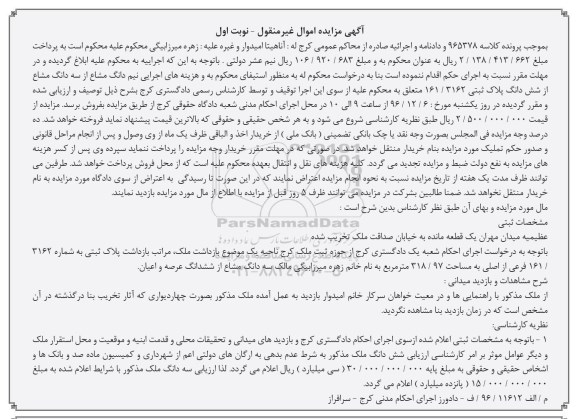 آگهی مزایده اموال غیرمنقول - نوبت اول
بموجب پرونده کلاسه ۹۶۵۳۷۸ و دادنامه و اجرائیه صادره از محاکم عمومی کرج له : آناهیتا امیدوار و غیره علیه : زهره میرزابیگی محکوم علیه محکوم است به پرداخت
مبلغ ۶۶۲ / ۴۱۳ / ۱۳۸ / ۲ ریال به عنوان محکوم به و مبلغ ۶۸۳ / ۹۲۰ / ۱۰۶ ریال نیم عشر دولتی . باتوجه به این که اجراییه به محکوم علیه ابلاغ گردیده و در
مهلت مقرر نسبت به اجرای حکم اقدام ننموده است بنا به درخواست محکوم له به منظور استیفای محکوم به و هزینه های اجرایی نیم دانگ مشاع از سه دانگ مشاع
از شش دانگ پلاک ثبتی ۳۱۶۲ / ۱۶۱ متعلق به محکوم علیه از سوی این اجرا توقیف و توسط کارشناس رسمی دادگستری کرج بشرح ذیل توصیف و ارزیابی شده
و مقرر گردیده در روز یکشنبه مورخ : ۶ / ۱۲ / ۹۶ از ساعت ۹ الی ۱۰ در محل اجرای احکام مدنی شعبه دادگاه حقوقی کرج از طریق مزایده بفروش برسد. مزایده از
قیمت ۰۰۰ / ۰۰۰ / ۵۰۰ / ۲ ریال طبق نظریه کارشناسی شروع می شود و به هر شخص حقیقی و حقوقی که بالاترین قیمت پیشنهاد نماید فروخته خواهد شد. ده
درصد وجه مزایده فی المجلس بصورت وجه نقد یا چک بانکی تضمینی ( بانک ملی ) از خریدار اخذ و الباقی ظرف یک ماه از وی وصول و پس از انجام مراحل قانونی
و صدور حکم تملیک مورد مزایده بنام خریدار منتقل خواهد شد. در صورتی که در مهلت مقرر خریدار وجه مزایده را پرداخت ننماید سپرده وی پس از کسر هزینه
های مزایده به نفع دولت ضبط و مزایده تجدید می گردد. کلیه هزینه های نقل و انتقال بعهده محکوم علیه است که از محل فروش پرداخت خواهد شد. طرفین می
توانند ظرف مدت یک هفته از تاریخ مزایده نسبت به نحوه انجام مزایده اعتراض نمایند که در این صورت تا رسیدگی به اعتراض از سوی دادگاه مورد مزایده به نام
خریدار منتقل نخواهد شد. ضمنا طالبین بشرکت در مزایده می توانند ظرف ۵ روز قبل از مزایده با اطلاع از مال مورد مزایده بازدید نمایند.
مال مورد مزایده و بهای آن طبق نظر کارشناس بدین شرح است :
مشخصات ثبتی
عظیمیه میدان مهران یک قطعه مانده به خیابان صداقت ملک تخریب شده
باتوجه به درخواست اجرای احکام شعبه یک دادگستری کرج از حوزه ثبت ملک کرج ناحیه یک موضوع بازداشت ملک، مراتب بازداشت پلاک ثبتی به شماره ۳۱۶۲
/ ۱۶۱ فرعی از اصلی به مساحت ۹۷ / ۳۱۸ مترمربع به نام خانم زهره میرزابیگی مالک سه دانگ مشاع از ششدانگ عرصه و اعیان.
شرح مشاهدات و بازدید میدانی :
از ملک مذکور با راهنمایی ها و در معیت خواهان سرکار خانم امیدوار بازدید به عمل آمده ملک مذکور بصورت چهاردیواری که آثار تخریب بنا درگذشته در آن
مشخص است که در زمان بازدید بنا مشاهده نگردید.
نظریه کارشناسی:
۱ - باتوجه به مشخصات ثبتی اعلام شده ازسوی اجرای احکام دادگستری کرج و بازدید های میدانی و تحقیقات محلی و قدمت ابنیه و موقعیت و محل استقرار ملک
و دیگر عوامل موثر بر امر کارشناسی ارزیابی شش دانگ ملک مذکور به شرط عدم بدهی به ارگان های دولتی اعم از شهرداری و کمیسیون ماده صد و بانک ها و
اشخاص حقیقی و حقوقی به مبلغ پایه ۰۰۰ / ۰۰۰ / ۰۰۰ / ۳۰ ( سی میلیارد ) ریال اعلام می گردد. لذا ارزیابی سه دانگ ملک مذکور با شرایط اعلام شده به مبلغ
۰۰۰ / ۰۰۰ / ۰۰۰ / ۱۵ ( پانزده میلیارد ) اعلام می گردد.
م / الف ۱۱۶۱۲ / ۹۶ / ف - دادورز اجرای احکام مدنی کرج - سرافراز
ParsNamadData